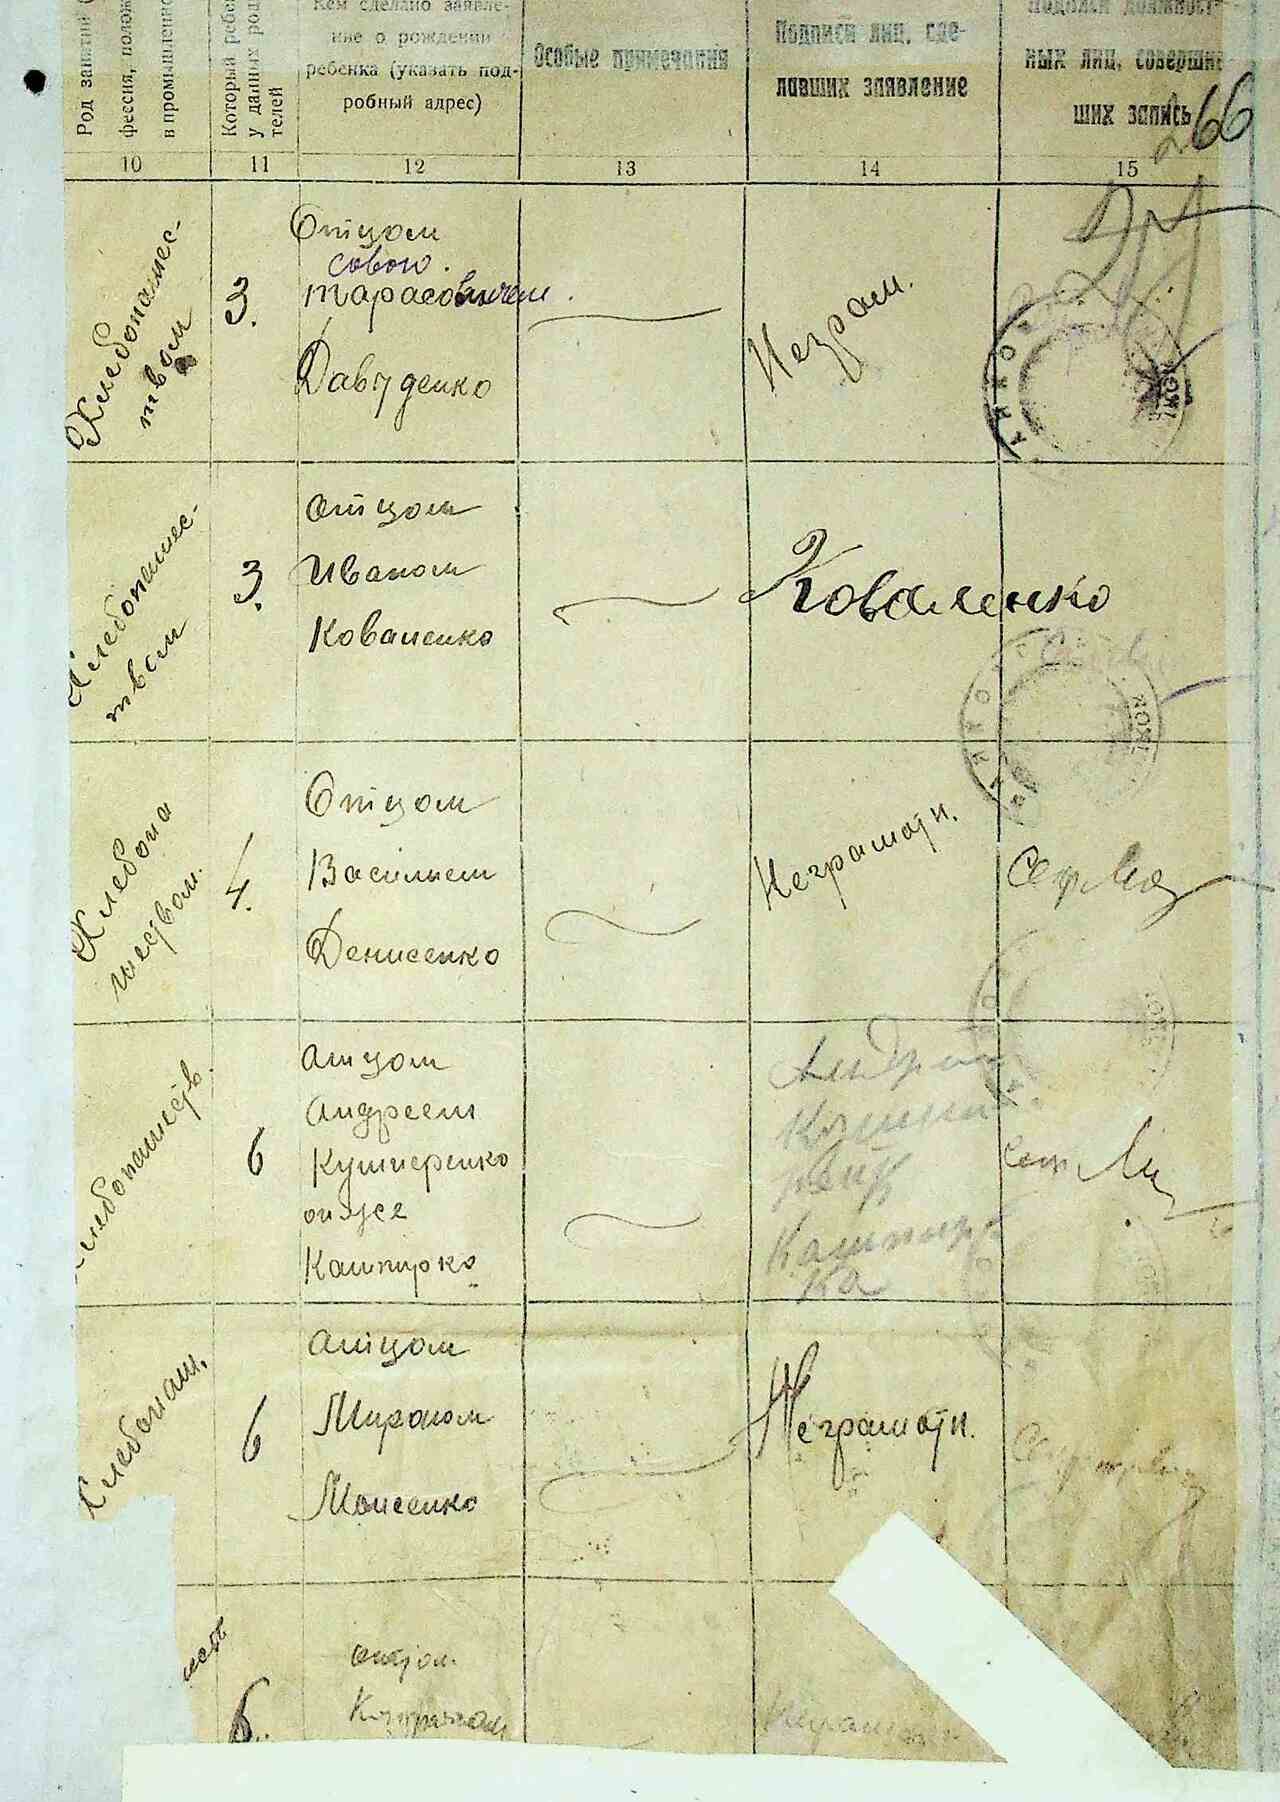 Род занятий
фессия, полож
в промышленно
Который ребе
у данных род
телей
Кем сделано заявле-
ние о рождении
ребенка (указать под-
робный адрес)
Особые примечания
Подписи лиц, сде-
лавших заявление
Подписи должност-
ных лиц, соверши
ших запись
266
10 11 12 13 14 15
Хлебопашес-
твом
3.
Отцом
Тарасовичем.
Давиденко
Неграм.
Хлебопашес-
твом
3.
Отцом
Иваном
Коваленко
Коваленко
Хлебопа
шеством.
4.
Отцом
Василием
Денисенко
Неграмотн.
Секр
лебопашеств.
6
Отцом
Андреем
Кушнеренко
он же
Кашпирко
Кашпир
ка
Секр
Хлебопаш.
6
Отцом
Мироном
Моисенко
Неграмотн.
6.
отцом.